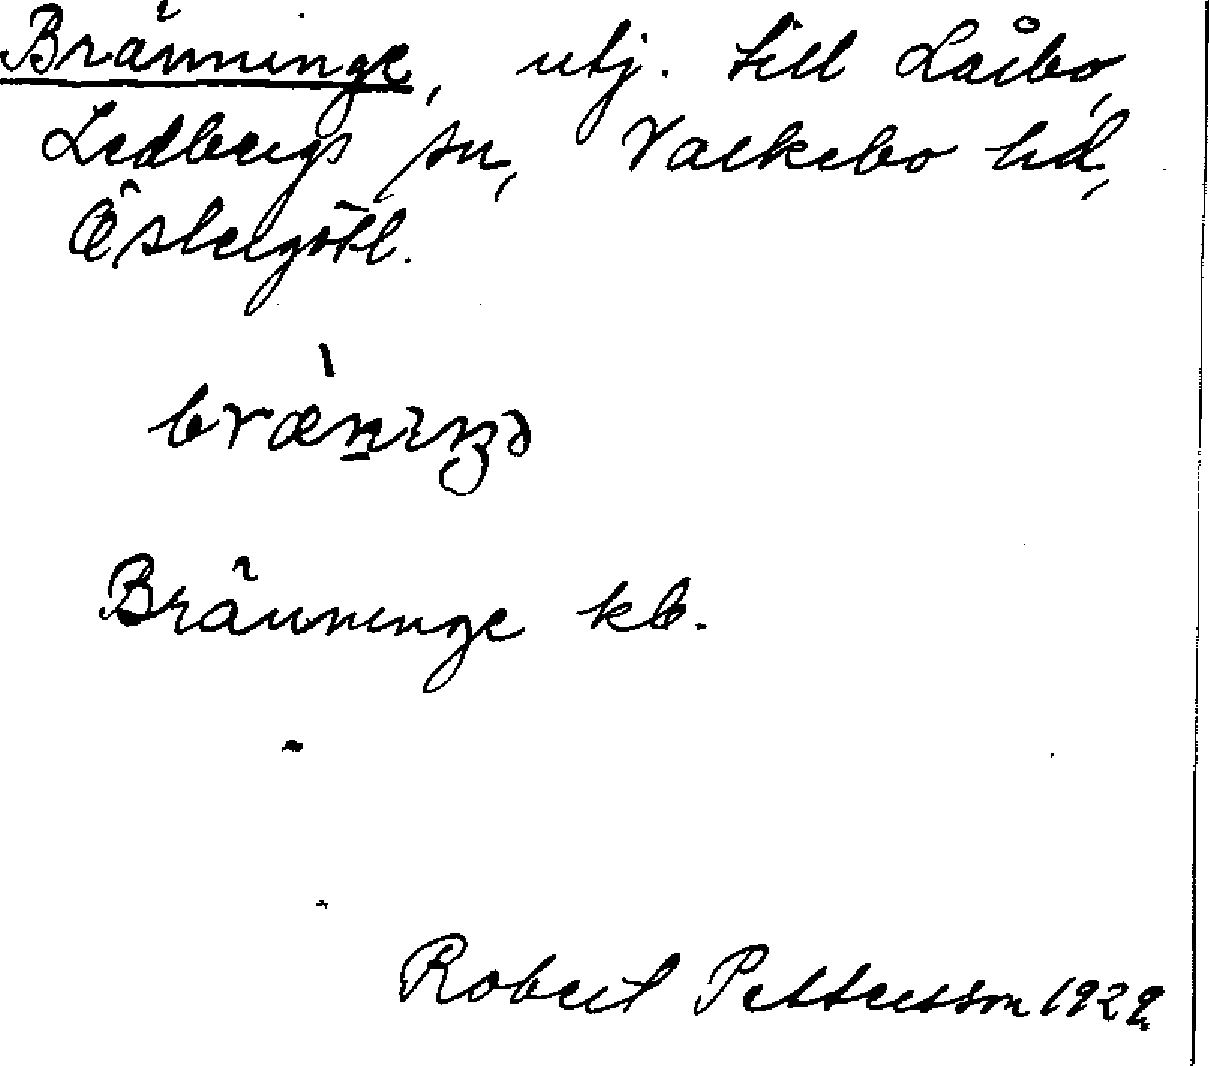 Bränninge, utj. till Låibo,
Ledbergs sn, Valkebo hd,
Östergötl.
brænıŋə
Bränninge kb.
Robert Pettersson 1929